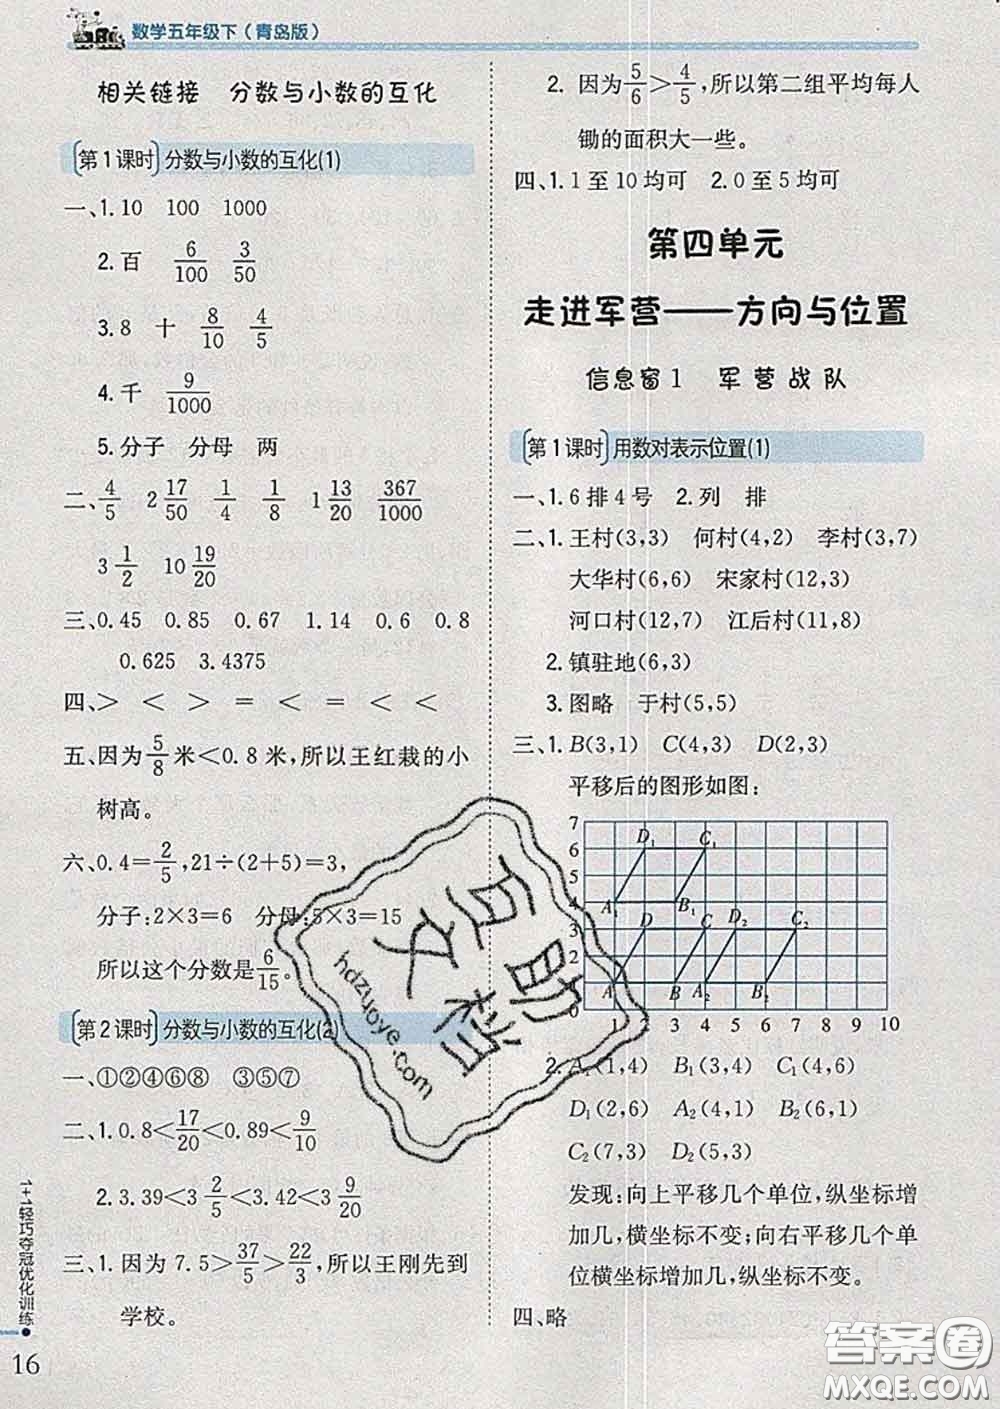 数学五年级下（青岛版）
相关链接　分数与小数的互化
第1课时 分数与小数的互化(1)
一、1.10　100　1000
2.百　6/100　3/50
3.8　十　8/10　4/5
4.千　9/1000
5.分子　分母　两
二、4/5　2 17/50　1/4　1/8　1 13/20　367/1000
3 1/2　10 19/20
三、0.45　0.85　0.67　1.14　0.6　0.8
0.625　3.4375
四、>　<　>　=　<　=　<　<
五、因为5/8米<0.8米,所以王红栽的小
树高。
六、0.4=2/5,21÷(2+5)=3,
分子:2×3=6　分母:5×3=15
所以这个分数是6/15。
第2课时 分数与小数的互化(2)
一、①②④⑥⑧　③⑤⑦
二、1.0.8<17/20<0.89<9/10
2.3.39<3 2/5<3.42<3 9/20
三、1.因为7.5>37/5>22/3,所以王刚先到
学校。
2.因为5/6>4/5,所以第二组平均每人
锄的面积大一些。
四、1.1至10均可　2.0至5均可
第四单元
走进军营——方向与位置
信息窗1　军营战队
第1课时 用数对表示位置(1)
一、1.6排4号　2.列　排
二、1.王村(3,3)　何村(4,2)　李村(3,7)
大华村(6,6)　宋家村(12,3)
河口村(12,7)　江后村(11,8)
2.镇驻地(6,3)
3.图略　于村(5,5)
三、1.B(3,1)　C(4,3)　D(2,3)
平移后的图形如图:
7
6
5
4
3
2
1
0
D₁　C₁
A₁　B₁
D　C　D₂　C₂
A　B　A₂　B₂
1 2 3 4 5 6 7 8 9 10
2.A₁(1,4)　B₁(3,4)　C₁(4,6)
D₁(2,6)　A₂(4,1)　B₂(6,1)
C₂(7,3)　D₂(5,3)
发现:向上平移几个单位,纵坐标增
加几,横坐标不变;向右平移几个单
位横坐标增加几,纵坐标不变。
四、略
1+1轻巧夺冠优化训练
16
互助
文档
hdzuoye.com
答案圈
MXQE.COM